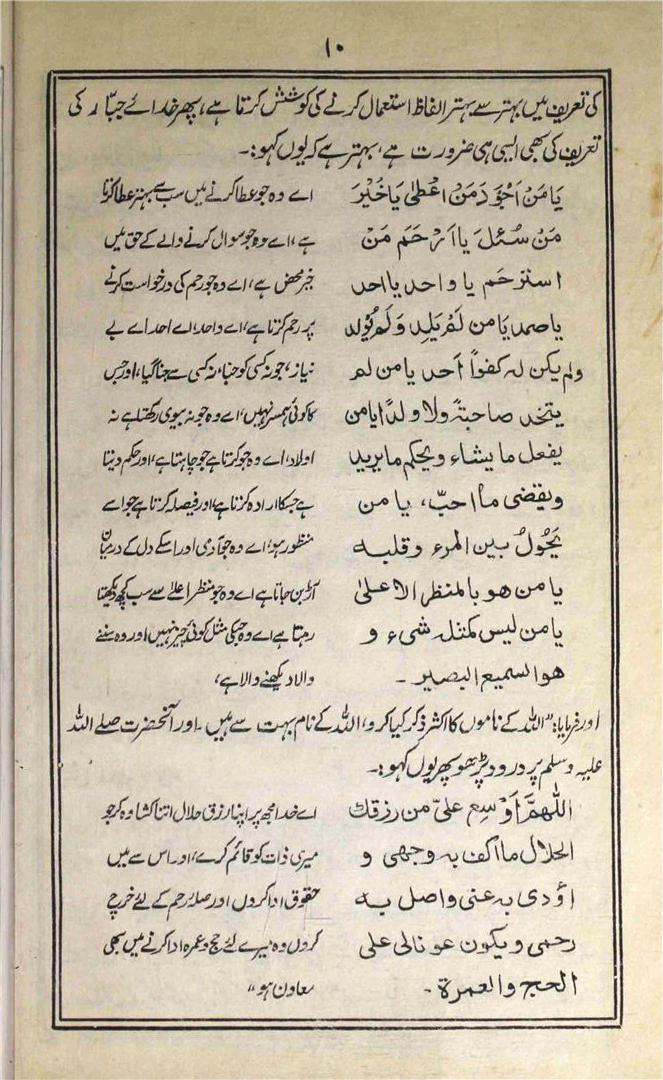 ۱۰
کی تعریف میں بہتر سے بہتر الفاظ استعمال کرنے کی کوشش کرتا ہے، پھر خدائے جبّار کی
تعریف کی بھی ایسی ہی ضرورت ہے، بہتر ہے کہ یوں کہو:۔
یَا مَنْ اَجْوَدَ مَنْ اعْطٰی یَا خَیْرَ
مَنْ سُئلَ یا اَرْحَمَ مَنْ
استرْحَم یا واحد یا احد
یا صمد یَا من لَمْ یَلِد وَلَمْ یُولد
ولم یکن لہ کفواً احد یا من لم
یتخذ صاحبتہً ولا ولداً یا من
یفعل ما یشاء ویحکم ما یرید
ویقضی ما احبّ، یا من
یَحُولُ بین المرء وقلبہ
یا من ھو بالمنظر الاعلیٰ
یا من لیس کمثلہ شیء و
ھو السمیع البصیر۔
اے وہ جو عطا کرنے میں سب سے بہتر عطا کرتا
ہے، اے وہ جو سوال کرنے والے کے حق میں
خیر محض ہے، اے وہ جو رحم کی درخواست کرنے
پر رحم کرتا ہے، اے واحد، اے احد اے بے
نیاز، جو نہ کسی کو جنا، نہ کسی سے جنا گیا، اور جس
کا کوئی ہمسر نہیں، اے وہ جو نہ بیوی رکھتا ہے نہ
اولاد، اے وہ جو کرتا ہے جو چاہتا ہے، اور حکم دیتا
ہے جسکا ارادہ کرتا ہے، اور فیصلہ کرتا ہے جو اسے
منظور ہو، اے وہ جو آدمی اور اسکے دل کے درمیان
آڑ بن جاتا ہے اے وہ جو منظر اعلےٰ سے سب کچھ دیکھتا
رہتا ہے اے وہ جسکی مثل کوئی چیز نہیں اور وہ سننے
والا دیکھنے والا ہے،
اور فرمایا: "اللہ کے ناموں کا اکثر ذکر کیا کرو، اللہ کے نام بہت سے ہیں۔ اور آنحضرت صلے اللہ
علیہ وسلم پر درود پڑھو پھر یوں کہو:۔
اللّٰھمَّ اَوْسِع علیّ من رزقك
الحلال ما اکف بہ وجھی و
اؤدی بہ عنی واصل بہ
رحمی ویکون عونالی علی
الحج والعمرة۔
اے خدا مجھ پر اپنا رزق حلال اتنا کشادہ کر جو
میری ذات کو قائم کرے، اور اس سے میں
حقوق ادا کروں اور صلۂ رحم کے لئے خرچ
کروں وہ میرے لئے حج و عمرہ ادا کرنے میں بھی
معاون ہو"